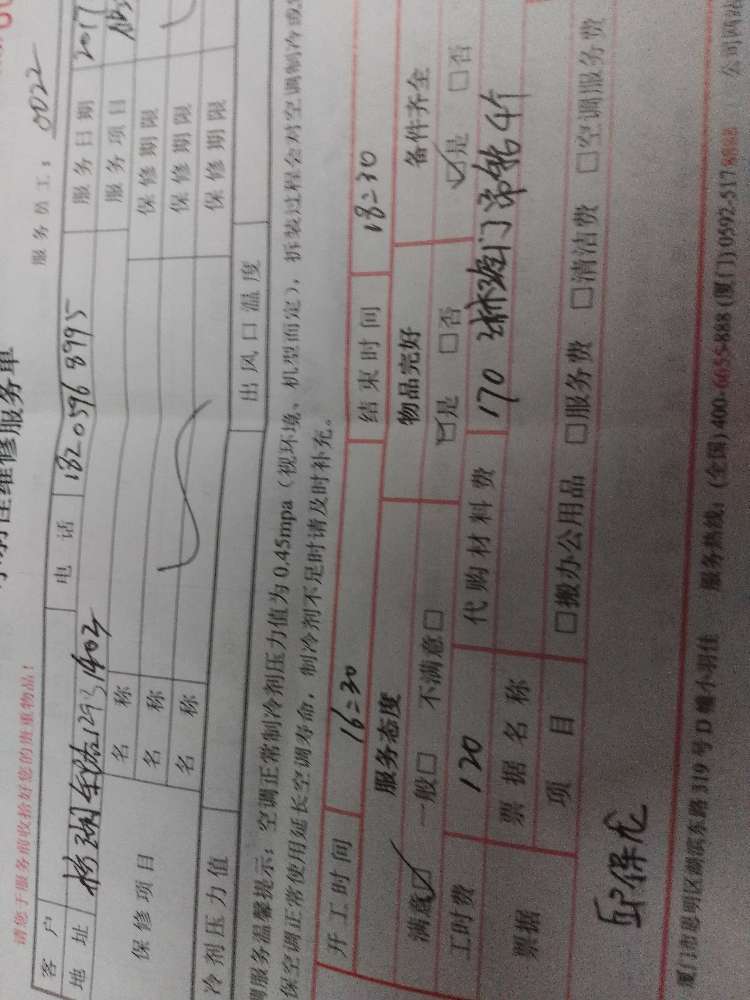 佳维修服务单
请您于服务前收拾好您的贵重物品！
服务员工：0022
客户 电话 18205968995 服务日期 2017
地址 1403 服务项目
保修项目 名称 保修期限
名称 保修期限
名称 保修期限
冷剂压力值 出风口温度
调服务温馨提示：空调正常制冷剂压力值为0.45mpa（视环境、机型而定），拆装过程会对空调制冷
保空调正常使用延长空调寿命，制冷剂不足时请及时补充。
开工时间 16:30 结束时间 18:30
服务态度 物品完好 备件齐全
满意☑ 一般□ 不满意□ ☑是 □否 ☑是 □否
工时费 120 代购材料费 170
票据 票据名称
项目 □搬办公用品 □服务费 □清洁费 □空调服务费
邱保龙
厦门市思明区湖滨东路319号D幢小羽佳 服务热线：(全国)400-6655-888 (厦门)0592-5178888 公司网站